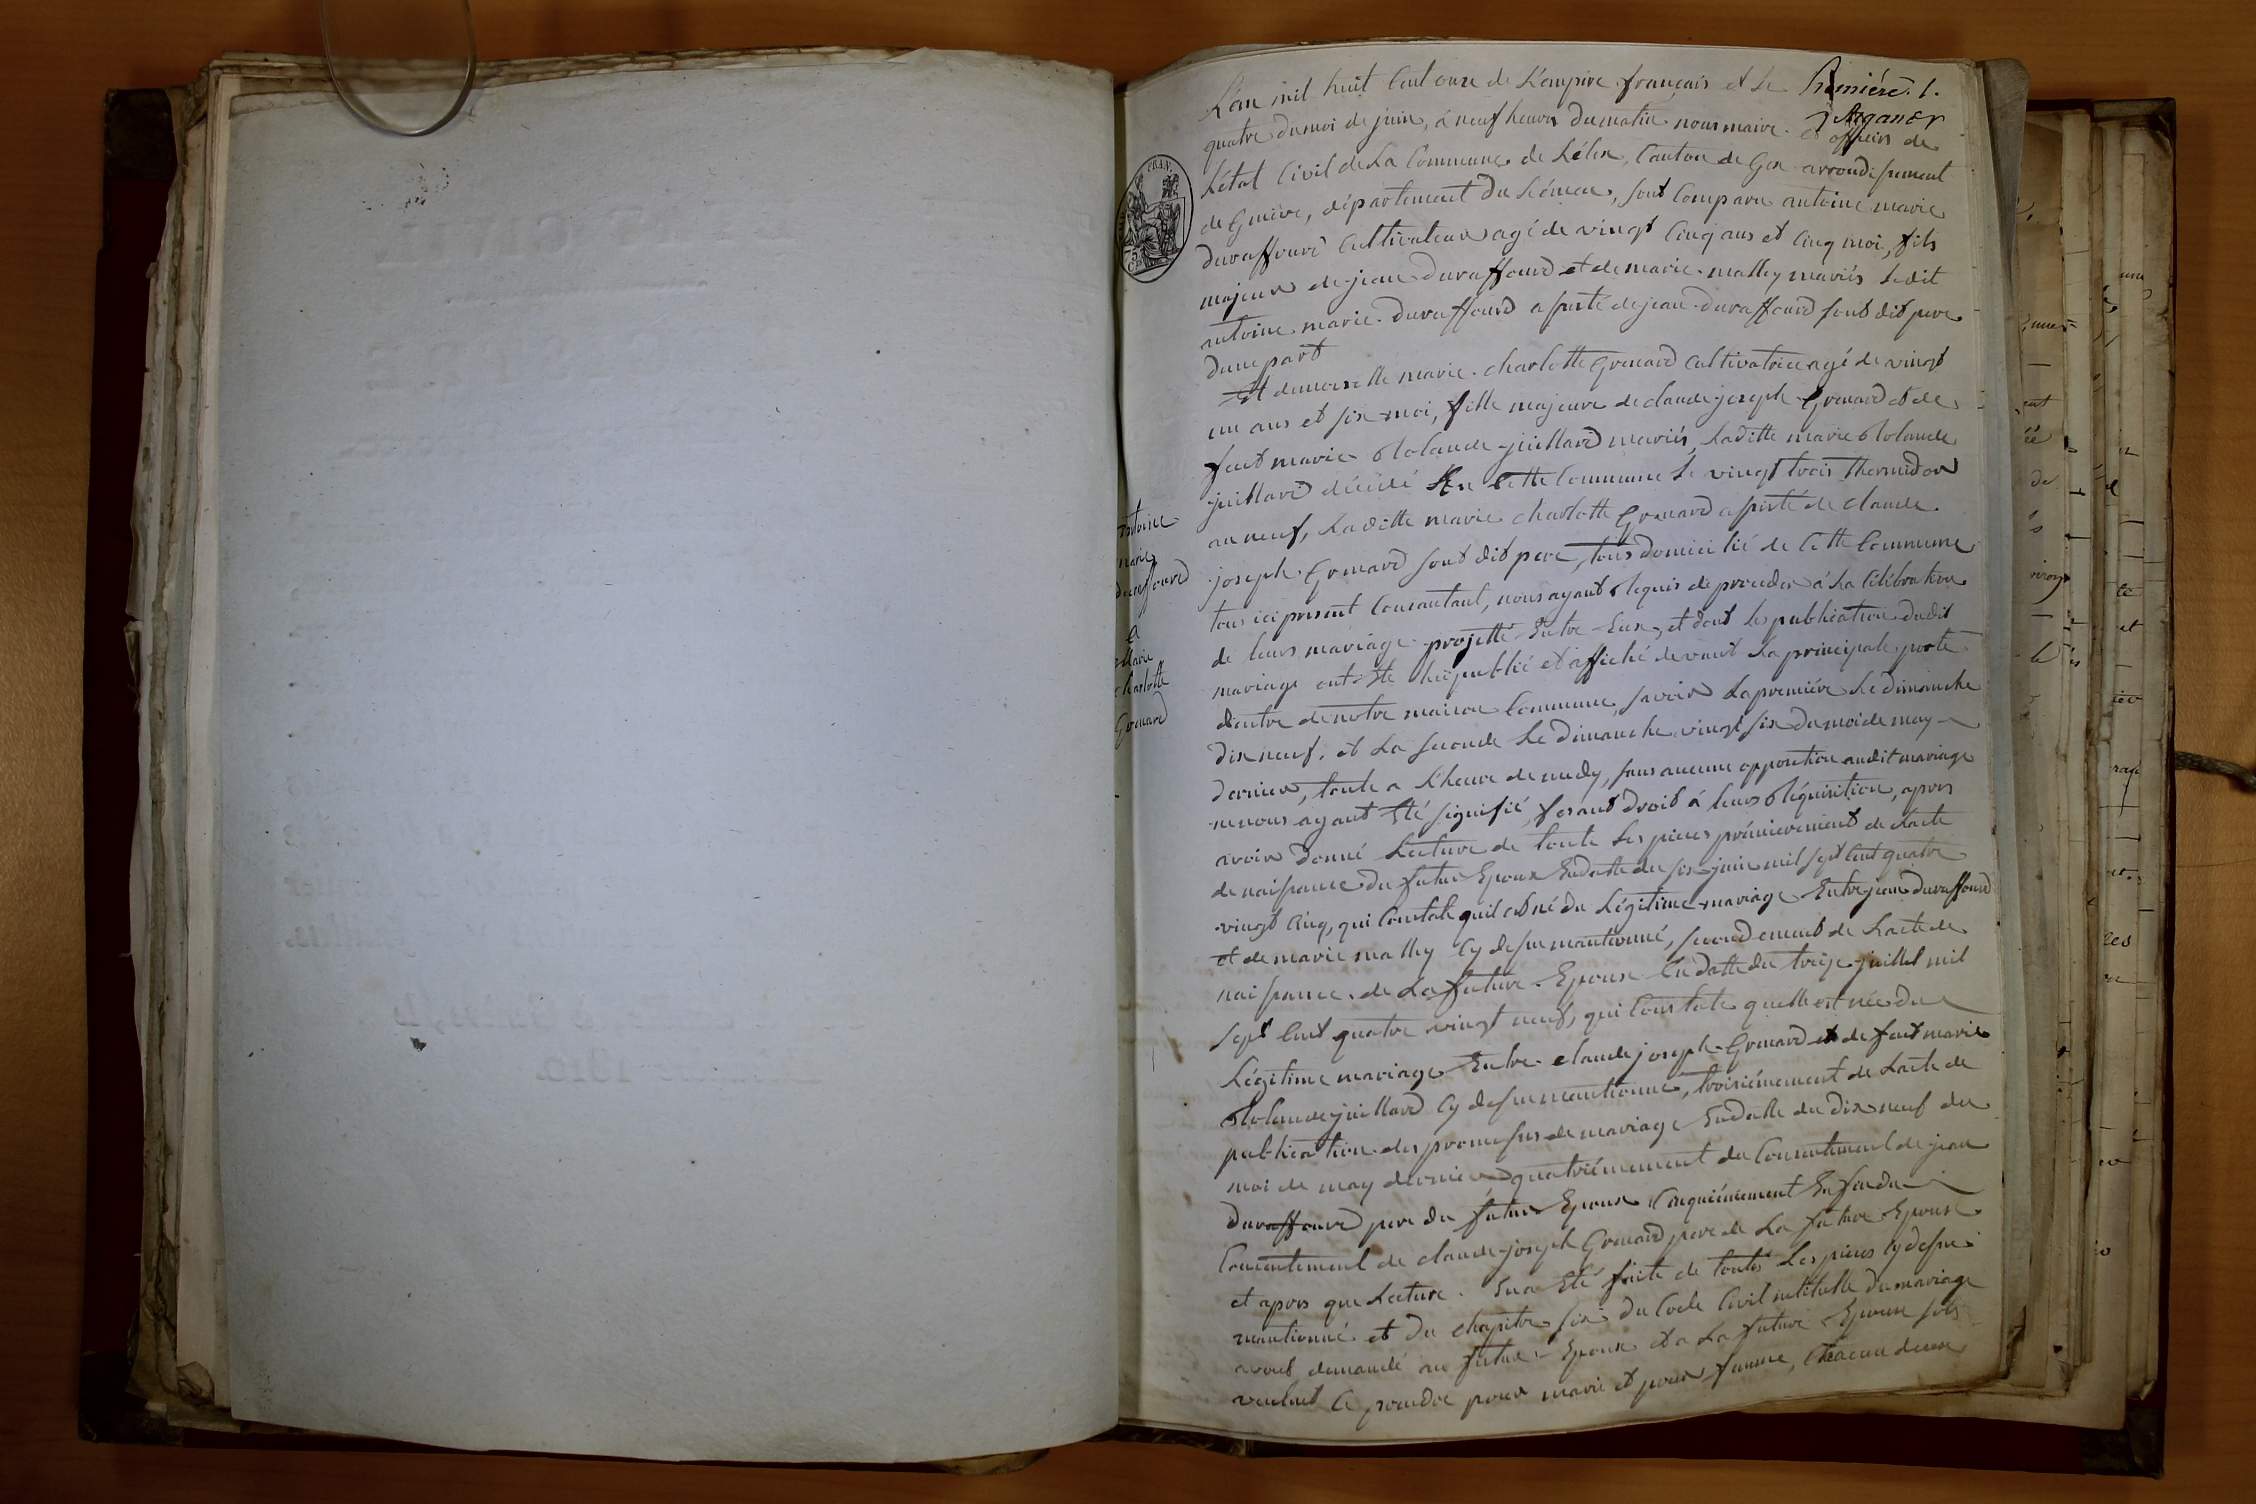 L'an mil huit Cent onze de L'empire français et le
Premiére. 1.
quatre du moi de juin, à neuf heures du matin nous maire et officier de
L'état Civil de La Commune de Lélex, Canton de Gex arrondissement
de Genève, département du Léman, sont Comparu antoine marie
duraffourd Cultivateur agé de vingt Cinq ans et Cinq moi, fils
majeur de jean duraffourd et de marie mathy mariés Ledit
antoine marie duraffourd assisté de jean duraffourd sont dit pere
dune part
Et demoiselle marie charlotte Gronard Cultivatrice agé de vingt
un ans et six moi, fille majeure de claude joseph Gronard et de
feut marie Rolande juillard mariés, Laditte marie Rolande
juillard décédé En Cette Commune Le vingt trois thermidor
an neuf, Laditte marie charlotte Gronard assisté de claude
joseph Gronard sont dit pere, tous domicilié de Cette Commune
tous ici present Consantant, nous ayant Requis de proceder à La Célébration
de leurs mariage projetté Entre Eux, et dont Les publication dudit
mariage ont Eté Lu publié et affiché devant La principale porte
dentre de notre maison Commune, savoir La premiére Le dimanche
dix neuf, et La seconde Le dimanche vingt six du moi de may
dernier, toute a L'heure de midy, sans aucune opposition audit mariage
ne nous ayant Eté signifié, fesant droit á leurs Réquisition, apres
avoir donné Lecture de toute Les pieces prémierement de Lacte
de naissance du futur Epoux Endatte du six juin mil sept Cent quatre
vingt Cinq, qui Constate quil est né du Légitime mariage Entre jean duraffourd
et de marie mathy Cy dessu mantionné, secondement de Lacte de
naissance de La future Epouse En datte du treize juillet mil
sept Cent quatre vingt neuf, qui Constate quelle est née du
Légitime mariage Entre claude joseph Gronard et de feut marie
Rolande juillard Cy dessu mantionné, troisiémement de Lacte de
publication des promesses de mariage Endatte du dix neuf du
moi de may dernier quatriémement du Consentement de jean
duraffourd pere du futur Epoux Cinquiémement Enfin du
Consentement de claude joseph Gronard pere de La future Epouse
et apres que Lecture En a Eté faite de toutes Les pieces Cy dessu
mantionné et du chapitre six du Code Civil intitulle du mariage
avons demandé au futur Epoux et a La future Epouse sils
veulent Ce prendre pour mari et pour famme, Chacun deux
antoine
marie
duraffourd
a
Marie
Charlotte
Gronard